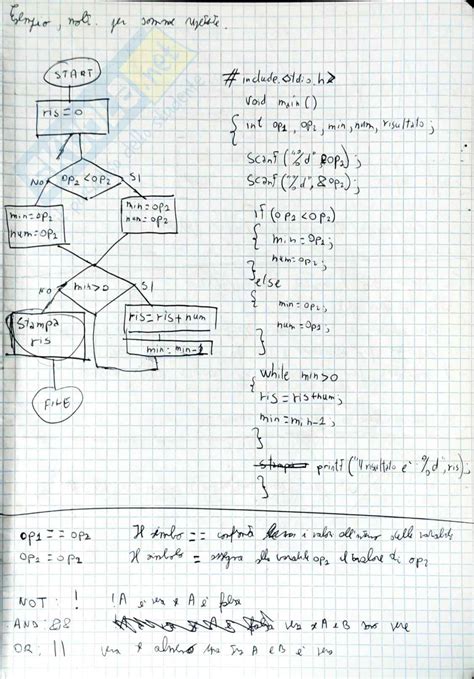 Esempio, molt. per somme ripetute.
START
ris=0
NO op1<op2 SI
min=op2
num=op1
min=op1
num=op2
NO min>0 SI
Stampa
ris
ris=ris+num
min=min-1
FINE
#include <stdio.h>
void main()
{ int op1, op2, min, num, risultato;
scanf("%d", &op1);
scanf("%d", &op2);
if(op1<op2)
{ min=op1;
num=op2;
}
else
{ min=op2;
num=op1;
}
{ while min>0
ris=ris+num;
min=min-1;
}
printf("Il risultato è %d",ris);
}
op1==op2 Il simbolo == confronta i valori all'interno delle variabili
op1=op2 Il simbolo = assegna alla variabile op1 il valore di op2
NOT: ! !A è vera A è falsa
AND: && vera A e B sono vere
OR: || vera almeno una tra A e B è vera